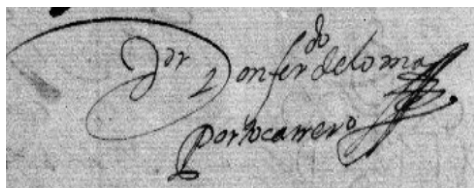 Dor Don ferdo de loma
portocarrero